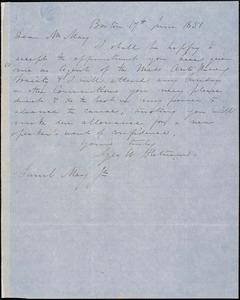 Boston 17th June 1851
Dear Mr May
I shall be happy to
accept the appointment you have given
me as Agent of the Mass. Anti Slavery
Society & I will attend any Sunday
or other Conventions you may please
direct & do the best in my power to
advance the cause, trusting you will
make due allowance for a new
speaker's want of confidence.
Yours truly
Geo W.
Saml May Jr